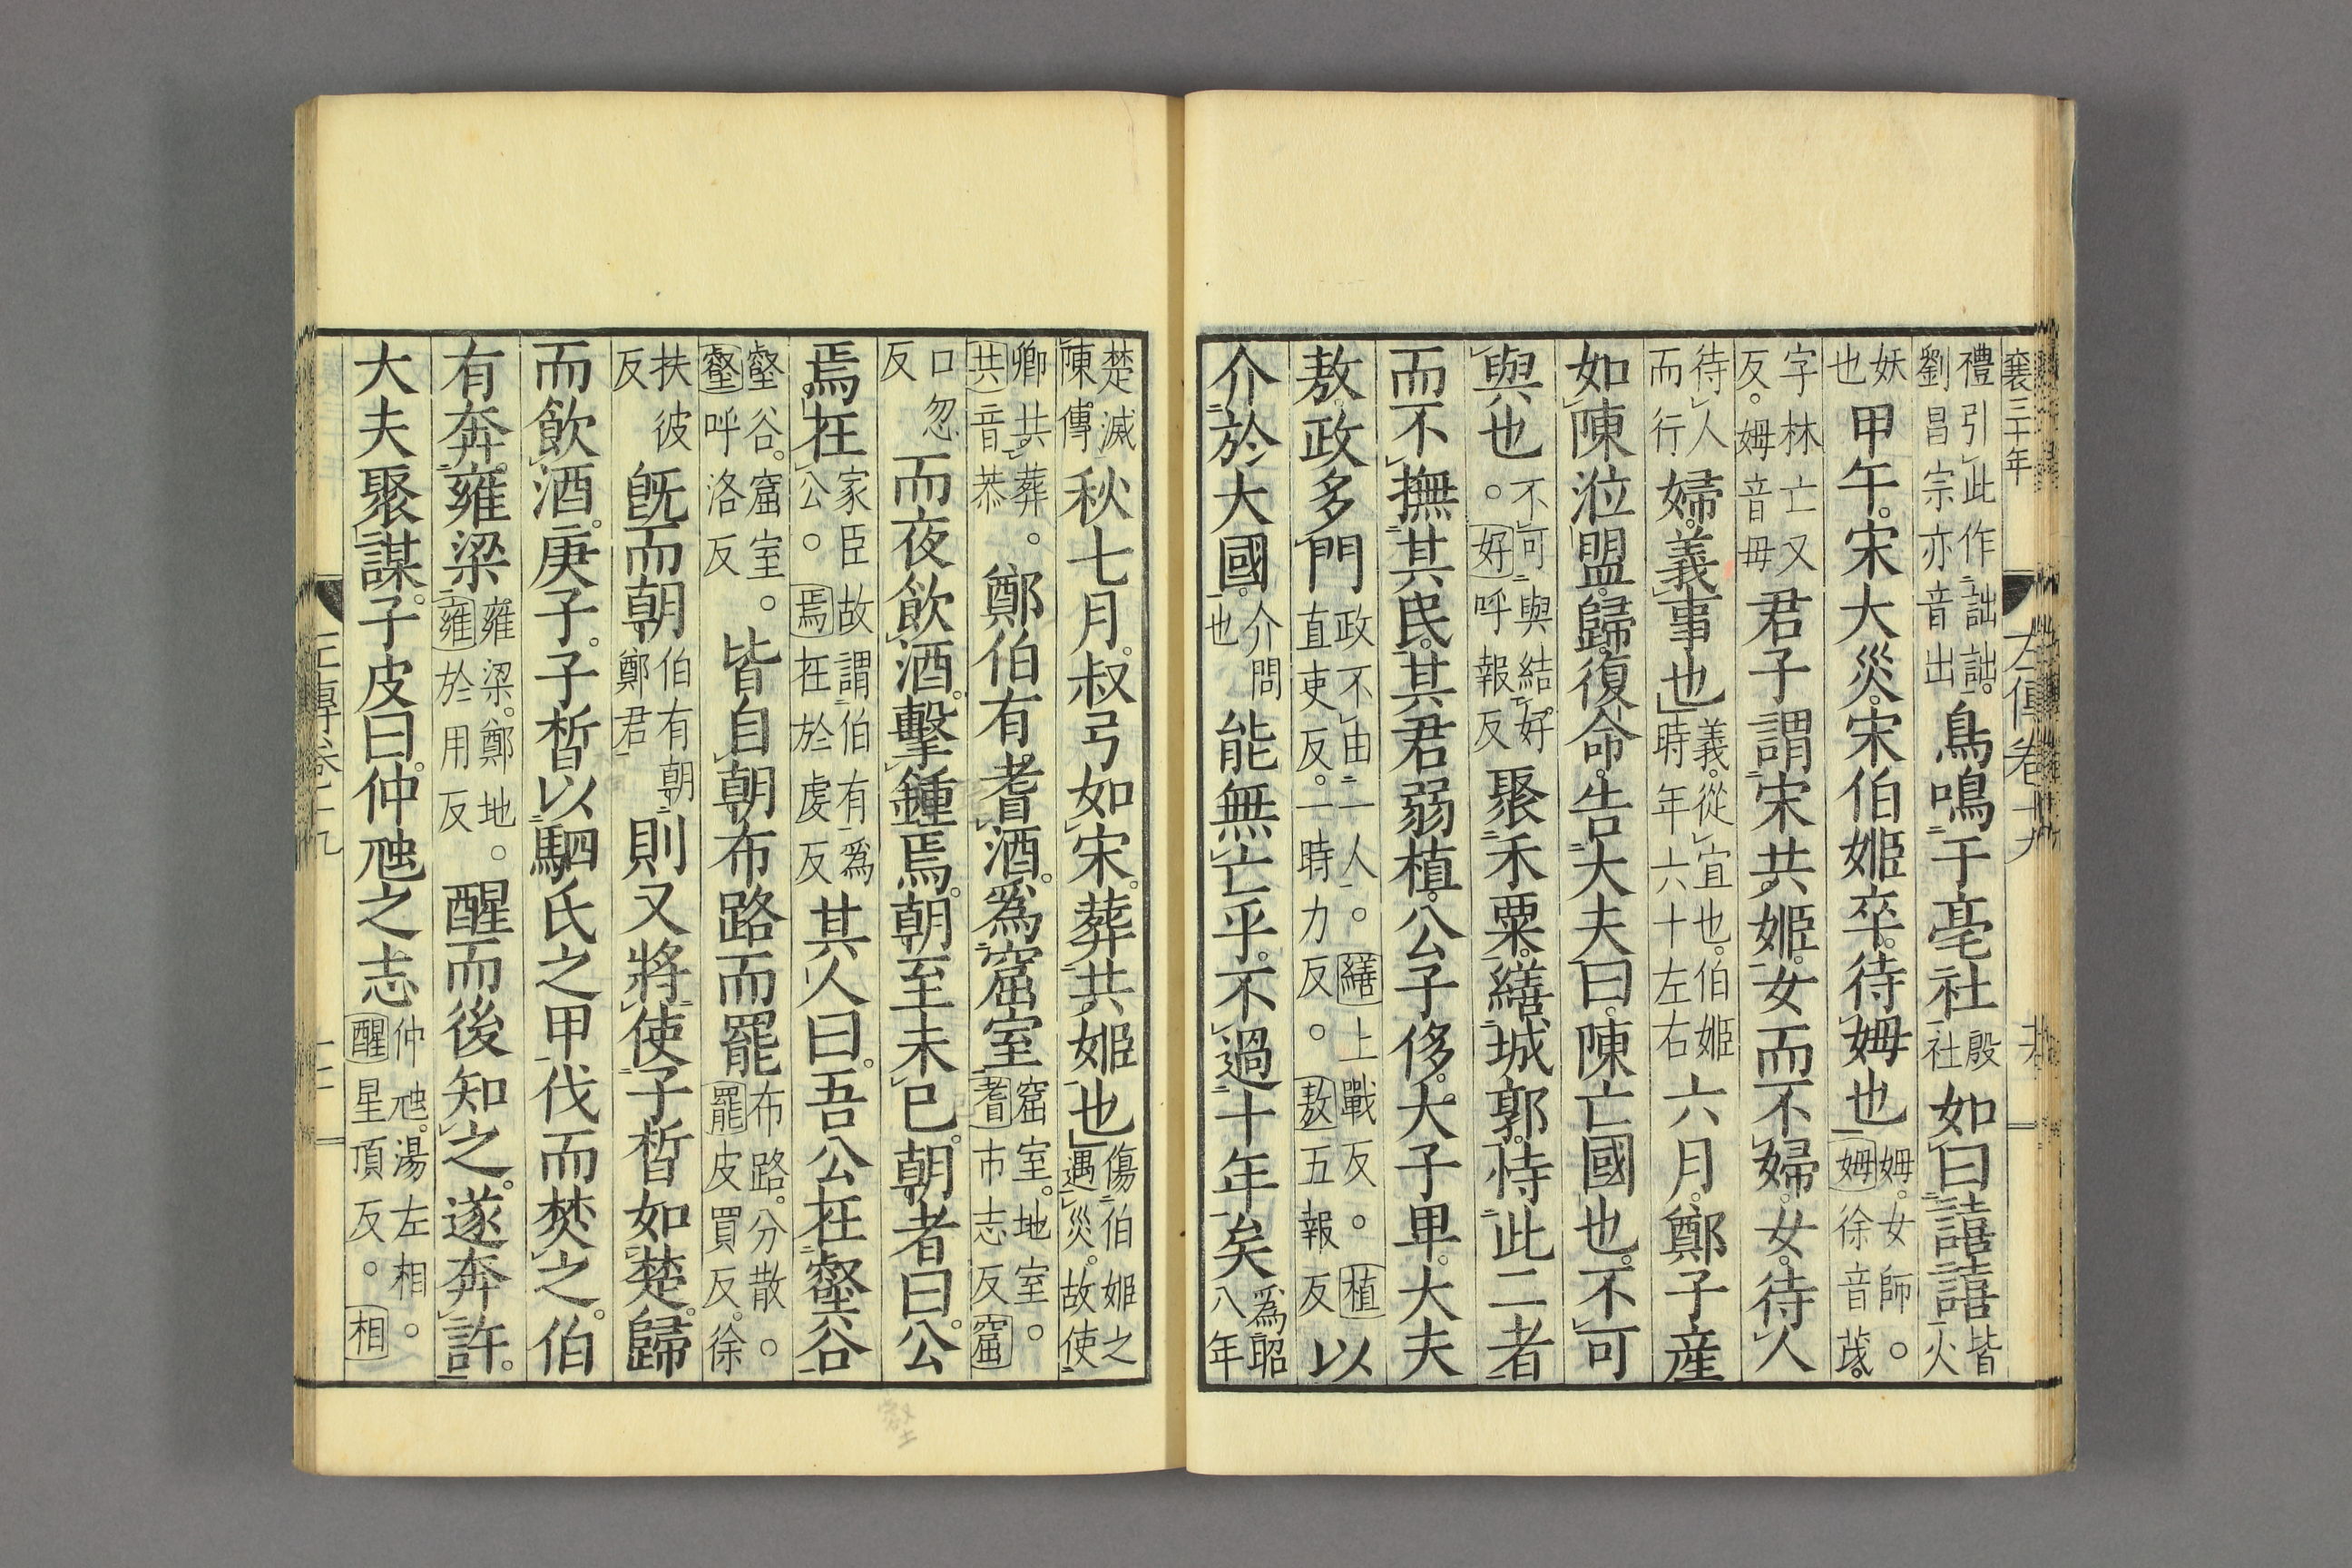 襄三十年 左傳卷十九
禮引此作詘詘。劉昌宗亦音出鳥鳴于亳社殷社如曰譆譆皆火
妖也甲午。宋大災。宋伯姬卒。待姆也姆。女師。姆徐音茂。
字林亡又反。姆音母君子謂宋共姬。女而不婦。女。待人
待人而行婦。義事也義。從宜也。伯姬時年六十左右六月。鄭子産
如陳涖盟。歸。復命。告大夫曰。陳亡國也。不可
與也不可與結好。好呼報反聚禾粟。繕城郭。恃此二者
而不撫其民。其君弱植。公子侈。大子卑。大夫
敖。政多門政不由一人。繕上戰反。植直吏反。一時力反。敖五報反以
介於大國。介問也能無亡乎。不過十年矣爲昭八年
楚滅陳傳秋七月。叔弓如宋。葬共姬也傷伯姬之遇災。故使
卿共葬。共音恭鄭伯有耆酒。爲窟室窟室。地室。耆市志反窟
口忽反而夜飲酒。擊鍾焉。朝至未已。朝者曰。公
焉在家臣故謂伯有爲公。焉在於虔反其人曰。吾公在壑谷
壑谷。窟室。壑呼洛反皆自朝布路而罷布路。分散。罷皮買反。徐
扶彼反既而朝伯有朝鄭君則又將使子晳如楚。歸
而飲酒。庚子。子晳以駟氏之甲伐而焚之。伯
有奔。雍梁雍梁。鄭地。雍於用反醒而後知之。遂奔許。
大夫聚謀。子皮曰。仲虺之志仲虺。湯左相。醒星頂反。相
左傳卷十九
壑